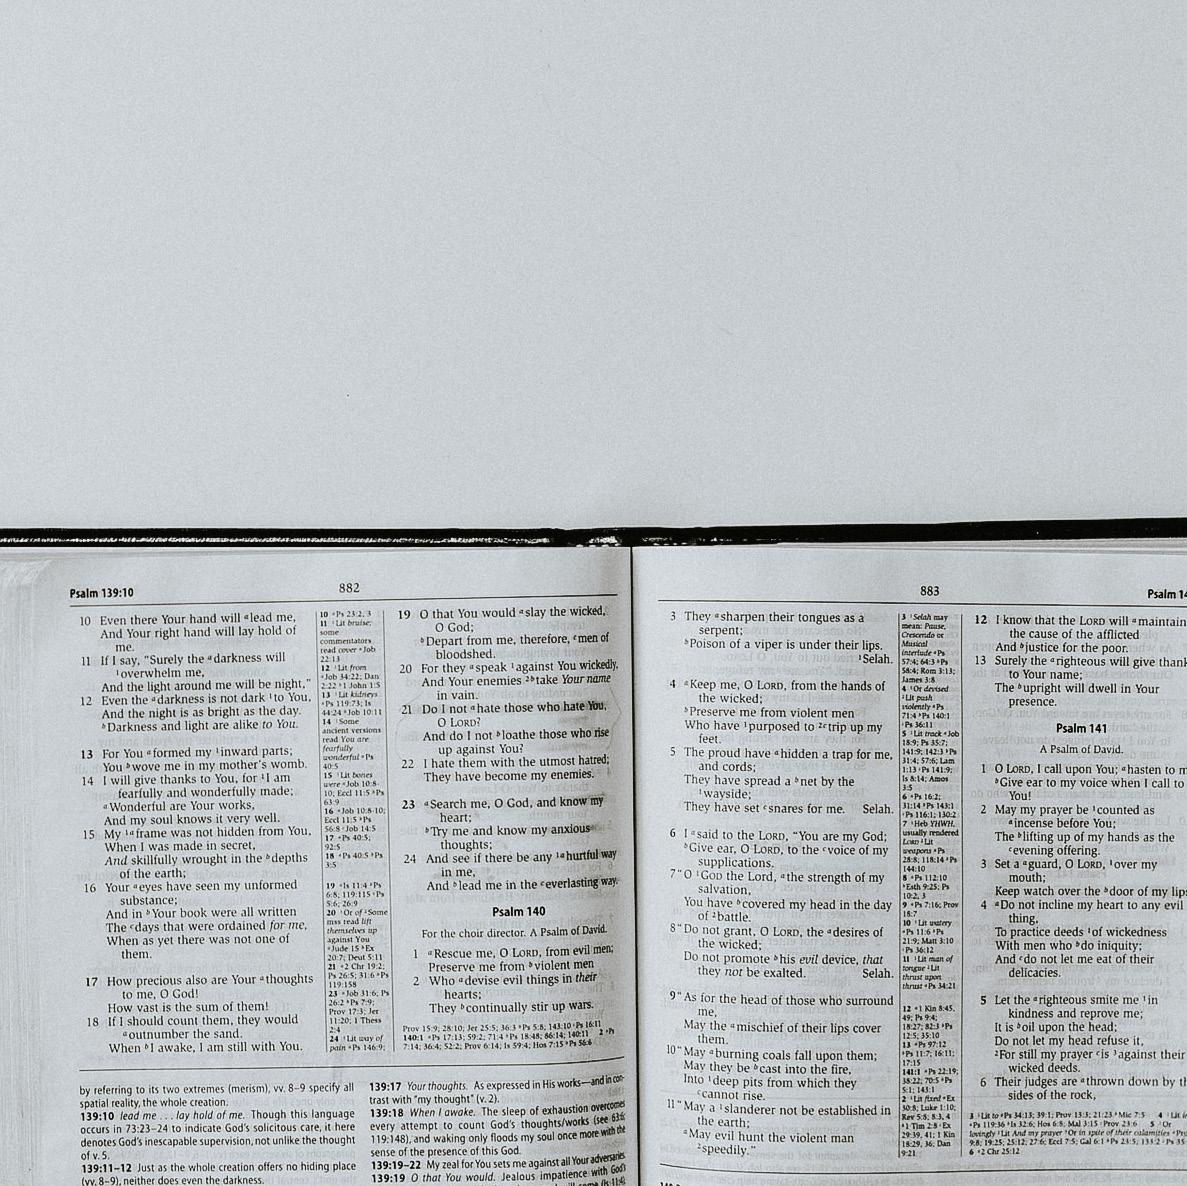 Psalm 139:10
882
10 Even there Your hand will ᵃlead me,
And Your right hand will lay hold of
me.
11 If I say, “Surely the ᵃdarkness will
¹overwhelm me,
And the light around me will be night,”
12 Even the ᵃdarkness is not dark ¹to You,
And the night is as bright as the day.
ᵇDarkness and light are alike to You.
13 For You ᵃformed my ¹inward parts;
You ᵇwove me in my mother's womb.
14 I will give thanks to You, for ¹I am
fearfully and wonderfully made;
ᵃWonderful are Your works,
And my soul knows it very well.
15 My ¹ᵃframe was not hidden from You,
When I was made in secret,
And skillfully wrought in the ᵇdepths
of the earth;
16 Your ᵃeyes have seen my unformed
substance;
And in ᵇYour book were all written
The ᶜdays that were ordained for me,
When as yet there was not one of
them.
17 How precious also are Your ᵃthoughts
to me, O God!
How vast is the sum of them!
18 If I should count them, they would
ᵃoutnumber the sand.
When ᵇI awake, I am still with You.
10 ᵃPs 23:2, 3
11 ¹Lit bruise;
some
commentators
read cover ᵃJob
22:13
12 ¹Lit from
ᵃJob 34:22; Dan
2:22 ᵇ1 John 1:5
13 ¹Lit kidneys
ᵃPs 119:73; Is
44:24 ᵇJob 10:11
14 ¹Some
ancient versions
read You are
fearfully
wonderful ᵃPs
40:5
15 ¹Lit bones
were ᵃJob 10:8-
10; Eccl 11:5 ᵇPs
63:9
16 ᵃJob 10:8-10;
Eccl 11:5 ᵇPs
56:8 ᶜJob 14:5
17 ᵃPs 40:5;
92:5
18 ᵃPs 40:5 ᵇPs
3:5
19 ᵃIs 11:4 ᵇPs
6:8; 119:115 ᶜPs
5:6; 26:9
20 ¹Or of ²Some
mss read lift
themselves up
against You
ᵃJude 15 ᵇEx
20:7; Deut 5:11
21 ᵃ2 Chr 19:2;
Ps 26:5; 31:6 ᵇPs
119:158
23 ᵃJob 31:6; Ps
26:2 ᵇPs 7:9;
Prov 17:3; Jer
11:20; 1 Thess
2:4
24 ¹Lit way of
pain ᵃPs 146:9;
19 O that You would ᵃslay the wicked,
O God;
ᵇDepart from me, therefore, ᶜmen of
bloodshed.
20 For they ᵃspeak ¹against You wickedly,
And Your enemies ²ᵇtake Your name
in vain.
21 Do I not ᵃhate those who hate You,
O LORD?
And do I not ᵇloathe those who rise
up against You?
22 I hate them with the utmost hatred;
They have become my enemies.
23 ᵃSearch me, O God, and know my
heart;
ᵇTry me and know my anxious
thoughts;
24 And see if there be any ¹ᵃhurtful way
in me,
And ᵇlead me in the ᶜeverlasting way.
Psalm 140
For the choir director. A Psalm of David.
1 ᵃRescue me, O LORD, from evil men;
Preserve me from ᵇviolent men
2 Who ᵃdevise evil things in their
hearts;
They ᵇcontinually stir up wars.
Prov 15:9; 28:10; Jer 25:5; 36:3 ᵇPs 5:8; 143:10 ᶜPs 16:11
140:1 ᵃPs 17:13; 59:2; 71:4 ᵇPs 18:48; 86:14; 140:11 2 ᵃPs
7:14; 36:4; 52:2; Prov 6:14; Is 59:4; Hos 7:15 ᵇPs 56:6
by referring to its two extremes (merism), vv. 8–9 specify all
spatial reality, the whole creation.
139:10 lead me . . . lay hold of me. Though this language
occurs in 73:23–24 to indicate God's solicitous care, it here
denotes God's inescapable supervision, not unlike the thought
of v. 5.
139:11–12 Just as the whole creation offers no hiding place
(vv. 8–9), neither does even the darkness.
139:17 Your thoughts. As expressed in His works—and in con-
trast with “my thought” (v. 2).
139:18 When I awake. The sleep of exhaustion overcomes
every attempt to count God's thoughts/works (see 63:6;
119:148), and waking only floods my soul once more with the
sense of the presence of this God.
139:19–22 My zeal for You sets me against all Your adversaries.
139:19 O that You would. Jealous impatience with God's
883
Psalm 14
3 They ᵃsharpen their tongues as a
serpent;
ᵇPoison of a viper is under their lips.
¹Selah.
4 ᵃKeep me, O LORD, from the hands of
the wicked;
ᵇPreserve me from violent men
Who have ¹purposed to ²ᶜtrip up my
feet.
5 The proud have ᵃhidden a trap for me,
and cords;
They have spread a ᵇnet by the
¹wayside;
They have set ᶜsnares for me. Selah.
6 I ᵃsaid to the LORD, “You are my God;
ᵇGive ear, O LORD, to the ᶜvoice of my
supplications.
7 “O ¹GOD the Lord, ᵃthe strength of my
salvation,
You have ᵇcovered my head in the day
of ²battle.
8 “Do not grant, O LORD, the ᵃdesires of
the wicked;
Do not promote ᵇhis evil device, that
they not be exalted. Selah.
9 “As for the head of those who surround
me,
May the ᵃmischief of their lips cover
them.
10 “May ᵃburning coals fall upon them;
May they be ᵇcast into the fire,
Into ¹deep pits from which they
ᶜcannot rise.
11 “May a ¹slanderer not be established in
the earth;
ᵃMay evil hunt the violent man
²speedily.”
3 ¹Selah may
mean: Pause,
Crescendo or
Musical
interlude ᵃPs
57:4; 64:3 ᵇPs
58:4; Rom 3:13;
James 3:8
4 ¹Or devised
²Lit push
violently ᵃPs
71:4 ᵇPs 140:1
ᶜPs 36:11
5 ¹Lit track ᵃJob
18:9; Ps 35:7;
141:9; 142:3 ᵇPs
31:4; 57:6; Lam
1:13 ᶜPs 141:9;
Is 8:14; Amos
3:5
6 ᵃPs 16:2;
31:14 ᵇPs 143:1
ᶜPs 116:1; 130:2
7 ¹Heb YHWH,
usually rendered
LORD ²Lit
weapons ᵃPs
28:8; 118:14 ᵇPs
144:10
8 ᵃPs 112:10
ᵇEsth 9:25; Ps
10:2, 3
9 ᵃPs 7:16; Prov
18:7
10 ¹Lit watery
ᵃPs 11:6 ᵇPs
21:9; Matt 3:10
ᶜPs 36:12
11 ¹Lit man of
tongue ²Lit
thrust upon
thrust ᵃPs 34:21
12 ᵃ1 Kin 8:45,
49; Ps 9:4;
18:27; 82:3 ᵇPs
12:5; 35:10
13 ᵃPs 97:12
ᵇPs 11:7; 16:11;
17:15
141:1 ᵃPs 22:19;
38:22; 70:5 ᵇPs
5:1; 143:1
2 ¹Lit fixed ᵃEx
30:8; Luke 1:10;
Rev 5:8; 8:3, 4
ᵇ1 Tim 2:8 ᶜEx
29:39, 41; 1 Kin
18:29, 36; Dan
9:21
12 I know that the LORD will ᵃmaintain
the cause of the afflicted
And ᵇjustice for the poor.
13 Surely the ᵃrighteous will give thank
to Your name;
The ᵇupright will dwell in Your
presence.
Psalm 141
A Psalm of David.
1 O LORD, I call upon You; ᵃhasten to m
ᵇGive ear to my voice when I call to
You!
2 May my prayer be ¹counted as
ᵃincense before You;
The ᵇlifting up of my hands as the
ᶜevening offering.
3 Set a ᵃguard, O LORD, ¹over my
mouth;
Keep watch over the ᵇdoor of my lips
4 ᵃDo not incline my heart to any evil
thing,
To practice deeds ¹of wickedness
With men who ᵇdo iniquity;
And ᶜdo not let me eat of their
delicacies.
5 Let the ᵃrighteous smite me ¹in
kindness and reprove me;
It is ᵇoil upon the head;
Do not let my head refuse it,
²For still my prayer ᶜis ³against their
wicked deeds.
6 Their judges are ᵃthrown down by th
sides of the rock,
3 ¹Lit to ᵃPs 34:13; 39:1; Prov 13:3; 21:23 ᵇMic 7:5 4 ¹Lit
ᵃPs 119:36 ᵇIs 32:6; Hos 6:8; Mal 3:15 ᶜProv 23:6 5 ¹Or
lovingly ²Lit And my prayer ³Or in spite of their calamities ᵃPro
9:8; 19:25; 25:12; 27:6; Eccl 7:5; Gal 6:1 ᵇPs 23:5; 133:2 ᶜPs 35
6 ᵃ2 Chr 25:12